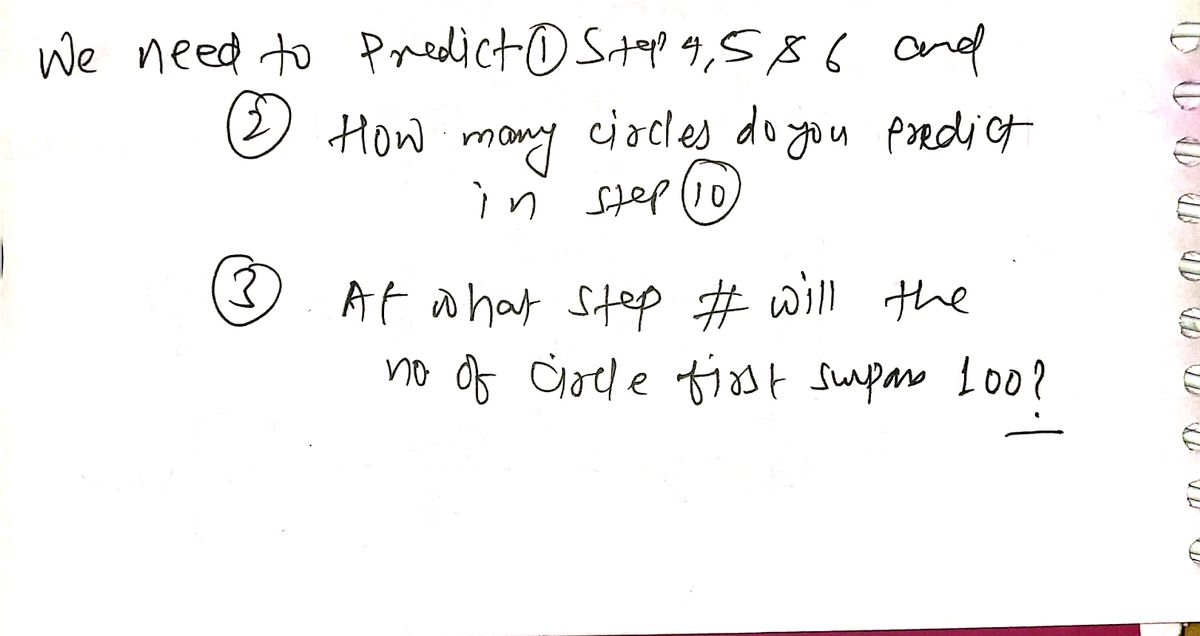 We need to Predict ① Step 4,5 & 6 and
② How many circles do you predict
in step ⑩
③ At what step # will the
no of circle first surpass 100?